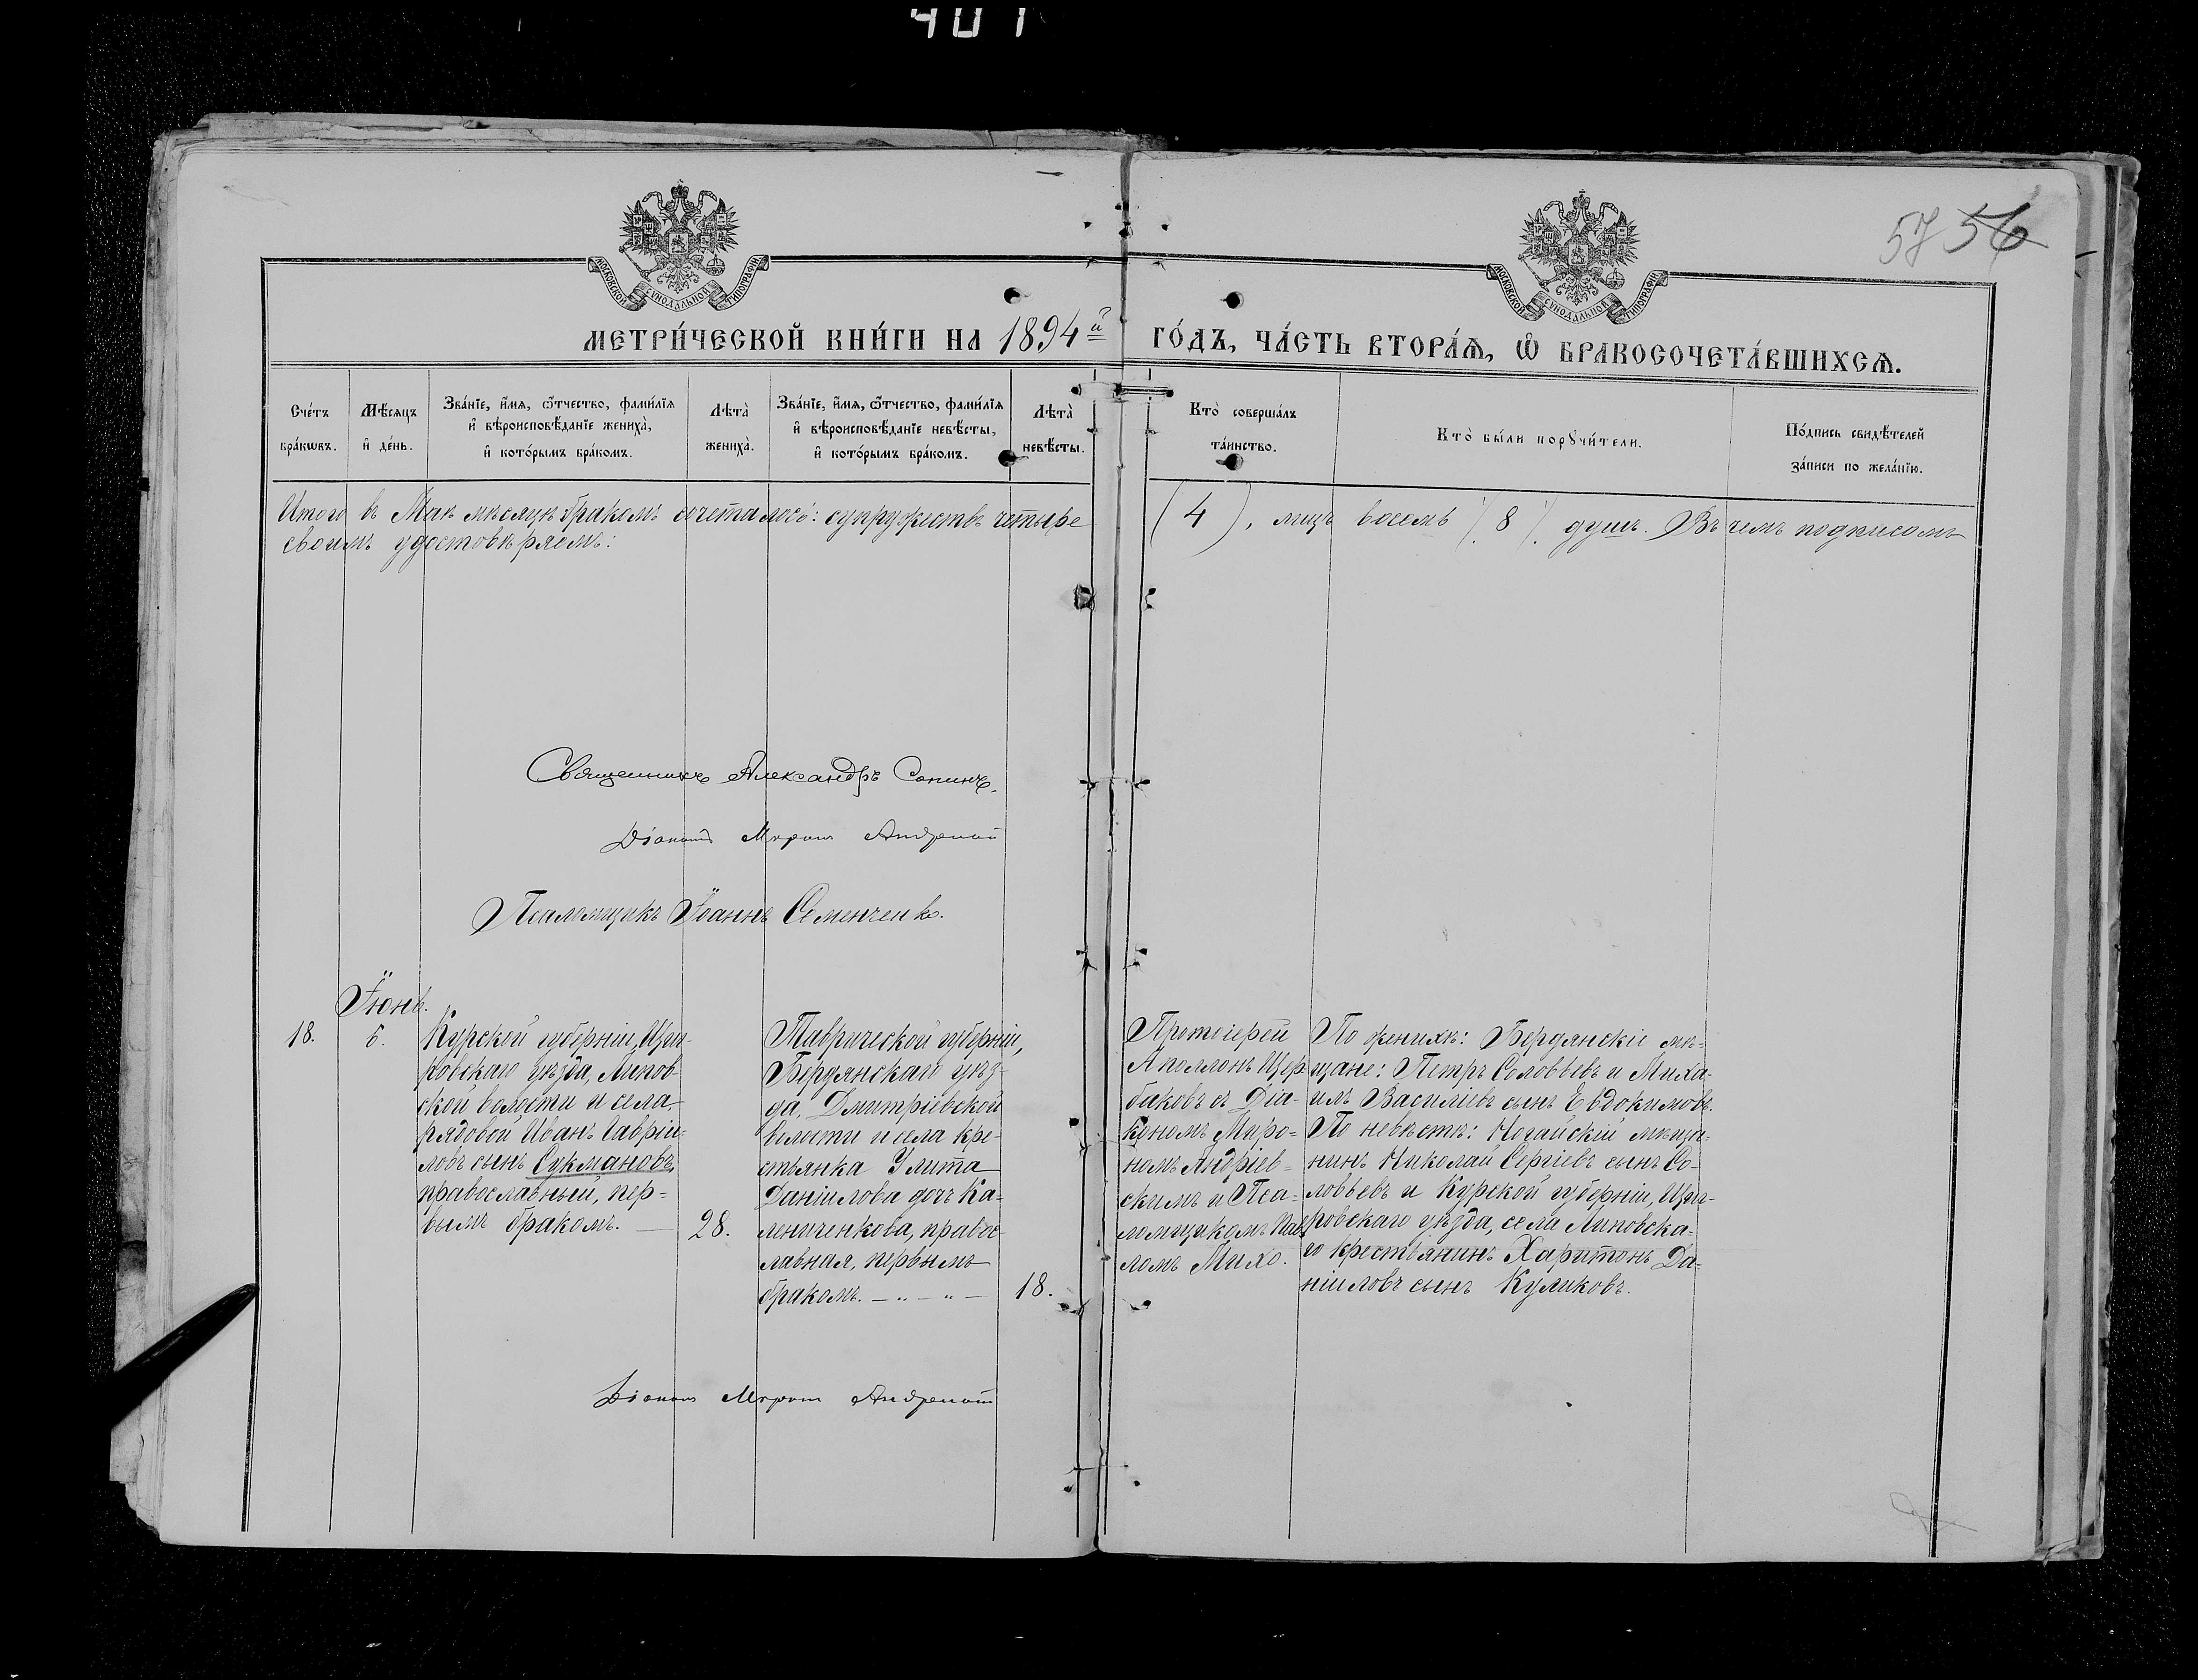 401
57 56
МОСКОВСКОЙ СѴНОДАЛЬНОЙ ТИПОГРАФІИ
МОСКОВСКОЙ СѴНОДАЛЬНОЙ ТИПОГРАФІИ
МЕТРИ́ЧЕСКОЙ КНИ́ГИ НА 1894й ГО́ДЪ, ЧА́СТЬ ВТОРА́Ѧ, Ѡ БРАКОСОЧЕТА́ВШИХСѦ.
Сче́тъ
бра́кѡвъ.
Мѣ́сяцъ
и҆ де́нь.
Зва́нїе, и҆́мя, ѻ҆́тчество, фами́лїя
и҆ вѣроисповѣ́данїе жениха̀,
и҆ кото́рымъ бра́комъ.
Лѣта̀
жениха̀.
Зва́нїе, и҆́мя, ѻ҆́тчество, фами́лїя
и҆ вѣроисповѣ́данїе невѣ́сты,
и҆ кото́рымъ бра́комъ.
Лѣта̀
невѣ́сты.
Кто̀ соверша́лъ
та́инство.
Кто̀ бы́ли порꙋчи́тели.
По́дпись свидѣ́телей
за́писи по жела́нїю.
Итого въ Маѣ мѣсяцѣ бракомъ сочеталось: супружествъ четыре (4), лицъ восемь (8) душъ. Въ чемъ подписомъ
своимъ удостовѣряемъ:
Священникъ Александръ Сопинъ.
Діаконъ Миронъ
Псаломщикъ Іоаннъ Семенченко.
Іюнь.
18.
5.
Курской губерніи, Щиг-
ровскаго уѣзда, Липов-
ской волости и села,
рядовой Иванъ Гаврии-
ловъ сынъ Сукмановъ,
православный, пер=
вымъ бракомъ. —
28.
Таврической губерніи,
Бердянскаго уѣз-
да, Дмитріевской
волости и села кре-
стьянка Улита
Даніилова дочь Ка-
линиченкова, правос-
лавная, первымъ
бракомъ. — „ — „ —
18.
Протоіерей
Аполлонъ Щер-
баковъ съ Діа-
кономъ Миро=
номъ Андріев=
скимъ и Пса=
ломщикомъ Пав-
ломъ Михо.
По женихѣ: Бердянскіе мѣ=
щане: Петръ Соловьевъ и Миха-
илъ Василіевъ сынъ Евдокимовъ.
По невѣстѣ: Ногайскій мѣща=
нинъ Николай Сергіевъ сынъ Со-
ловьевъ и Курской губерніи, Щиг-
ровскаго уѣзда, села Липовска=
го крестьянинъ Харитонъ Да=
ніиловъ сынъ Куликовъ.
Діаконъ Миронъ